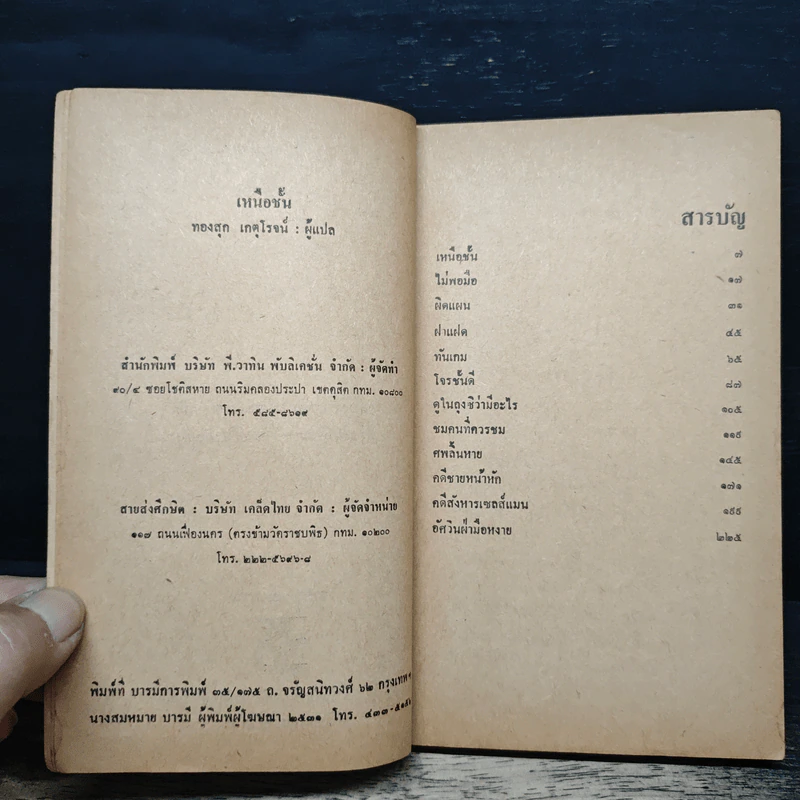 เหนือชั้น
ทองสุก เกตุโรจน์ : ผู้แปล
สำนักพิมพ์ บริษัท พี.วาทิน พับลิเคชั่น จำกัด : ผู้จัดทำ
๙๐/๔ ซอยโชคสหาย ถนนริมคลองประปา เขตดุสิต กทม. ๑๐๘๐๐
โทร. ๕๘๕-๘๖๑๙
สายส่งศึกษิต : บริษัท เคล็ดไทย จำกัด : ผู้จัดจำหน่าย
๑๑๗ ถนนเฟื่องนคร (ตรงข้ามวัดราชบพิธ) กทม. ๑๐๒๐๐
โทร. ๒๒๒-๕๖๙๖-๘
พิมพ์ที่ บารมีการพิมพ์ ๓๕/๑๗๕ ถ. จรัญสนิทวงศ์ ๖๒ กรุงเทพ
นางสมหมาย บารมี ผู้พิมพ์ผู้โฆษณา ๒๕๓๑ โทร.
สารบัญ
เหนือชั้น ๗
ไม่พอมือ ๑๗
ผิดแผน ๓๑
ฝาแฝด ๔๕
ทันเกม ๖๕
โจรชั้นดี ๘๗
ดูในถุงซิว่ามีอะไร ๑๐๕
ชมคนที่ควรชม ๑๑๙
ศพลิ้นหาย ๑๔๕
คดีชายหน้าหัก ๑๗๑
คดีสังหารเซลส์แมน ๑๙๙
อัศวินฝ่ามือหงาย ๒๒๕